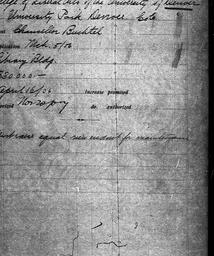 College of Liberal Arts of the University of Denver
University Park Denver Colo
Chancellor Buchtel
Feb. 5/06
Library Bldg.
$30000.—
April 16/06 Increase promised
do. authorized
must raise equal new endowt for maintenance